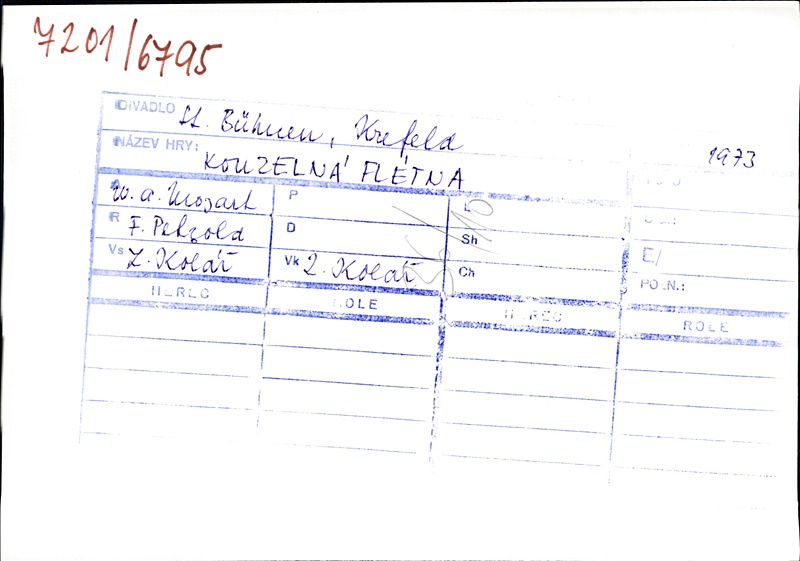 7201/6795
DIVADLO St. Bühnen, Krefeld
1973
NÁZEV HRY: KOUZELNÁ FLÉTNA
A W. A. Mozart P L
R F. Petzold D Sh
Vs Z. Kolář Vk Z. Kolář Ch
E/
HEREC ROLE HEREC ROLE